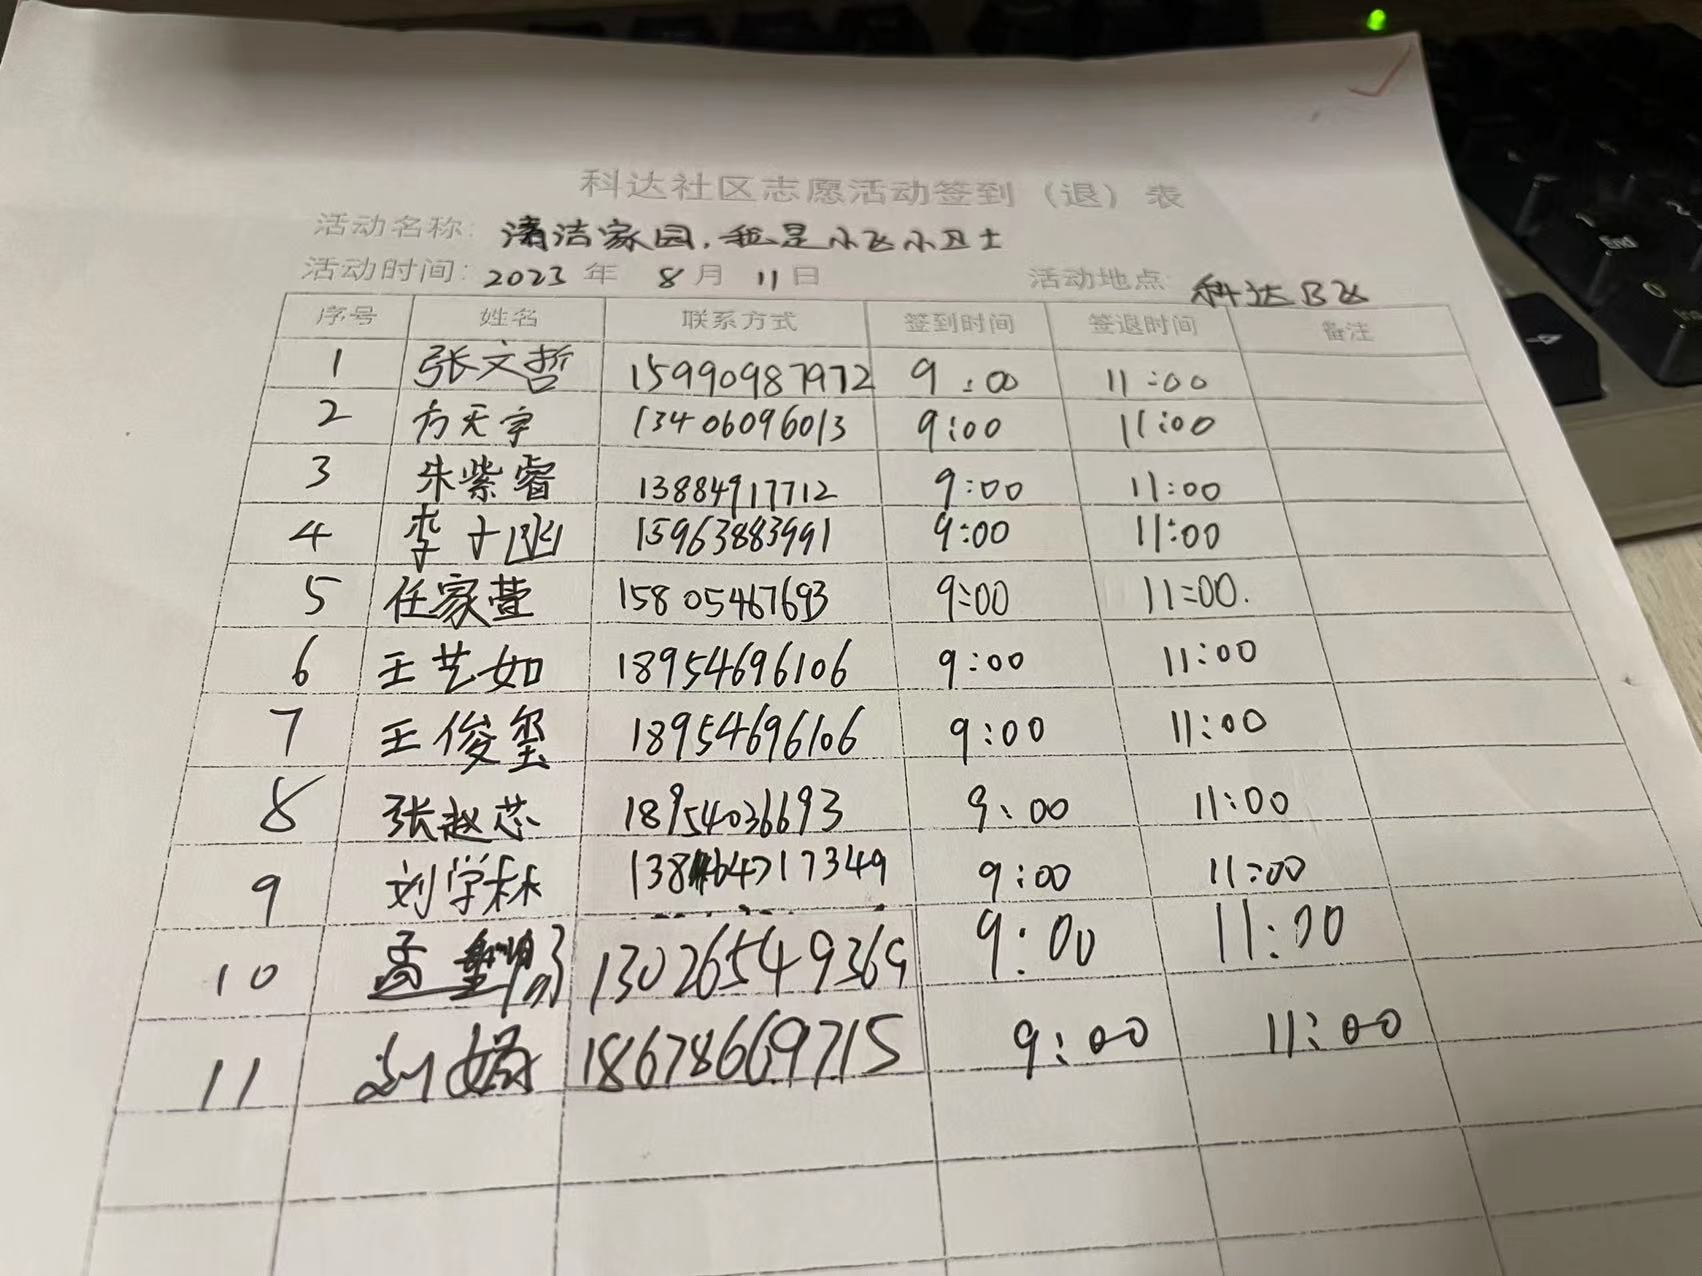 科达社区志愿活动签到（退）表
活动名称：清洁家园，我是小区小卫士
活动时间：2023 年 8 月 11 日 活动地点 科达B区
序号 姓名 联系方式 签到时间 签退时间 备注
1 张文哲 15990987972 9:00 11:00
2 方天宇 13406096013 9:00 11:00
3 朱紫睿 13884917712 9:00 11:00
4 李子涵 15963883991 9:00 11:00
5 任家萱 15805467693 9:00 11:00.
6 王艺如 18954696106 9:00 11:00
7 王俊玺 18954696106 9:00 11:00
8 张赵芯 18954036693 9:00 11:00
9 刘学林 9:00 11:00
10 孟 13026549369 9:00 11:00
11 刘 18678669715 9:00 11:00